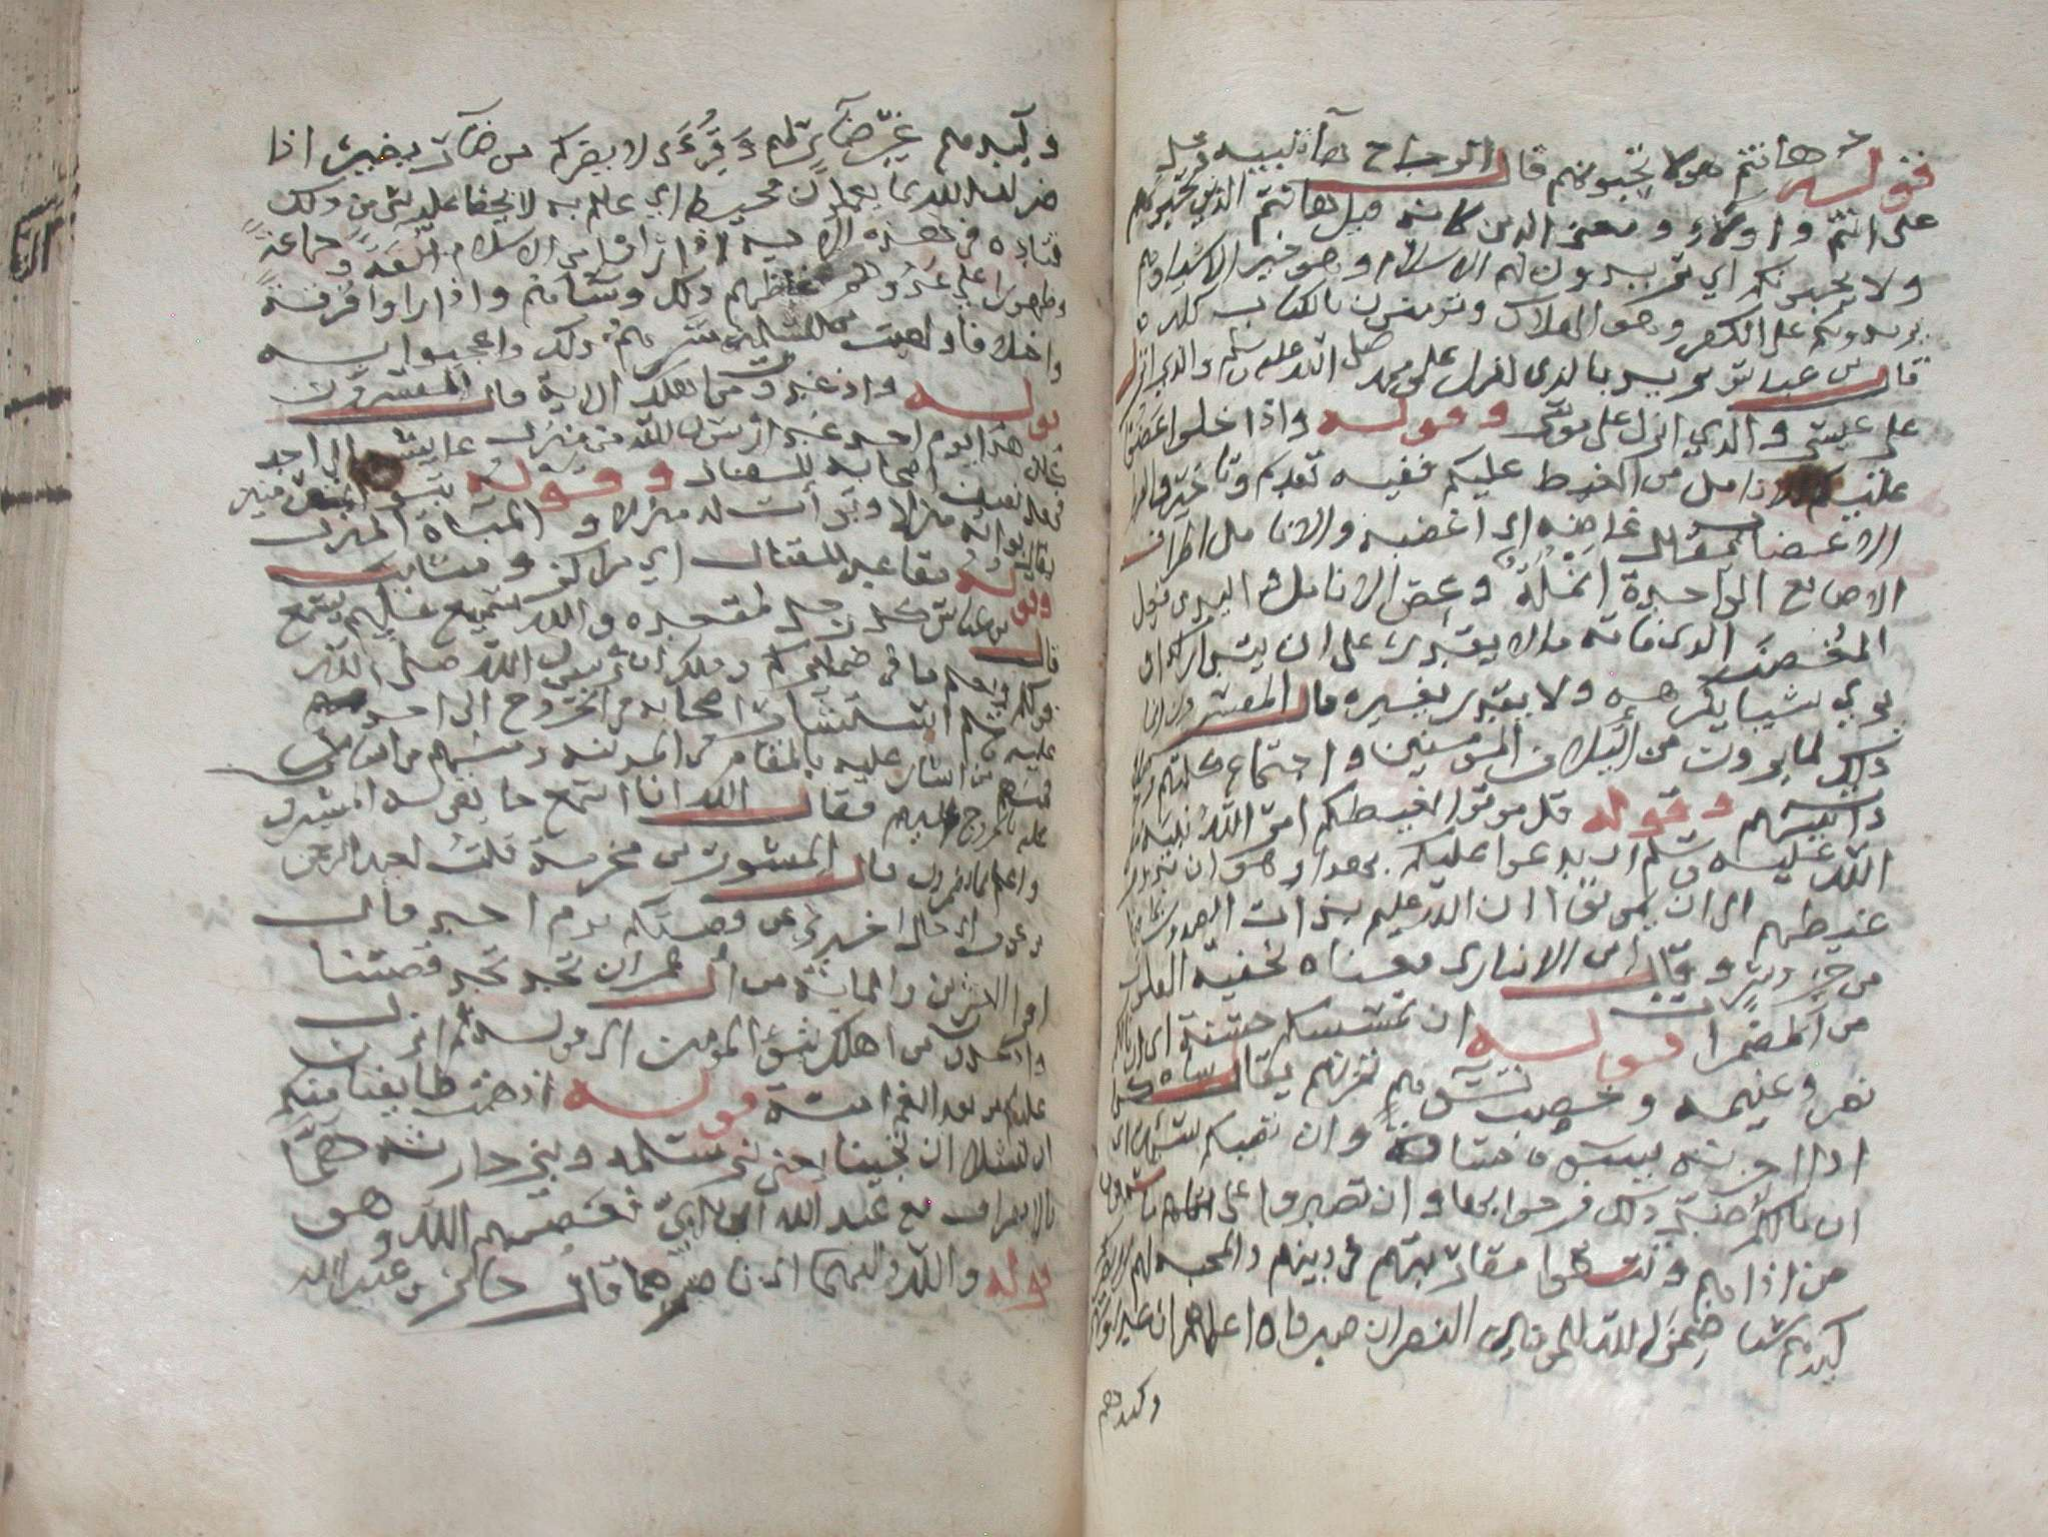 قوله ها انتم هولا تحبونهم قال الزجاج ها تنبيه دخل
على انتم واولاء ومعنى الذين كانه قيل ها انتم الذين تحبونهم
ولا يحبونكم اي تريدون لهم الاسلام وهو خير الاشيا وهم
يريدونكم على الكفر وهو الهلاك وتومنون بالكتاب كله
قال بن عباس يريد بالذي انزل على محمد صلى الله عليه وسلم والذي انزل
على عيسى والذي انزل على موسى وقوله واذا خلوا عضوا
عليكم الانامل من الغيظ عليكم ففيه تقديم وتاخير
الاغضاب يقال غاضه اي اغضبه والانامل اطراف
الاصابع الواحدة انملة وعض الانامل اليدين فعل
المغضب الذي فاته ما لا يقدر على ان يتداركه او
يرى شيا يكرهه ولا يقدر يغيره قال المفسرون
ذلك لما يرون من ائتلاف المومنين واجتماع كلمتهم وصلاح
ذات بينهم وقوله قل موتوا بغيظكم امر الله نبيه صلى
الله عليه وسلم ان يدعوا عليكم بهذا وهو ان يدوم
غيظهم الى ان يموتوا ان الله عليم بذات الصدور
من خير وشر وقال بن الانباري معناه بخفية القلوب
من المضمرات قوله ان تمسسكم حسنة اي
نصر وغنيمه وخصب تسوهم تحزنهم يقال ساه كل
اذا احزنه يسوه مساة وان تصبكم سيئة اي
ان نالكم ضد ذلك فرحوا بها وان تصبروا على
من اذاهم وتتقوا مقاربتهم في دينهم والمحبه لهم لا يضركم
كيدهم شيا ضمن الله للمومنين النصر ان صبروا
وكيدهم
وكيدهم غير ضاير لهم وقرئ لا يضركم من ضار يضير اذا
ضر ان الله بما يعملون محيط اي عالم به لا يخفا عليه شي من ذلك
قتاده في هذه الاية اذا راوا من الاسلام الفة وجماعة
وظهورا على عدوهم غاظهم ذلك وساهم واذا راوا فرقة
واختلافا واصيب للمسلمين سرهم ذلك واعجبوا به
قوله واذ غدوت من اهلك الاية قال المفسرون
هذا يوم احد غدا رسول الله من منزل عايشة الى احد
فجعل يصف اصحابه للقتال وقوله تبوى المومنين
يقال بواته منزلا وبوات له منزلا والمباة المنزل
وقوله مقاعد للقتال اي مراكز ومثابت
قال بن عباس كل رجل لمقعده والله سميع عليم يسمع
قولكم ويعلم ما في ضمايركم وذلك ان رسول الله صلى الله
عليه وسلم استشار اصحابه في الخروج الى احد
فمنهم من اشار عليه بالمقام في المدينه ومنهم من اشار
عليه بالخروج اليهم فقال الله انا اسمع ما يقوله المشيرون
واعلم ما يضمرون قال المسور بن مخرمة قلت لعبد الرحمن
بن عوف اي خال اخبرني عن قصتكم يوم احد قال
اقرا العشرين والمائة من ال عمران تجد قصتنا
واذ غدوت من اهلك تبوئ المومنين الى قوله ثم انزل
عليكم من بعد الغم امنة قوله اذ همت طايفتان منكم
ان تفشلا ان تجبنا يعني بني سلمه وبني حارثه هما
بالانصراف مع عبد الله بن ابي فعصمهم الله وهو
قوله والله وليهما اي ناصرهما قال جابر بن عبد الله